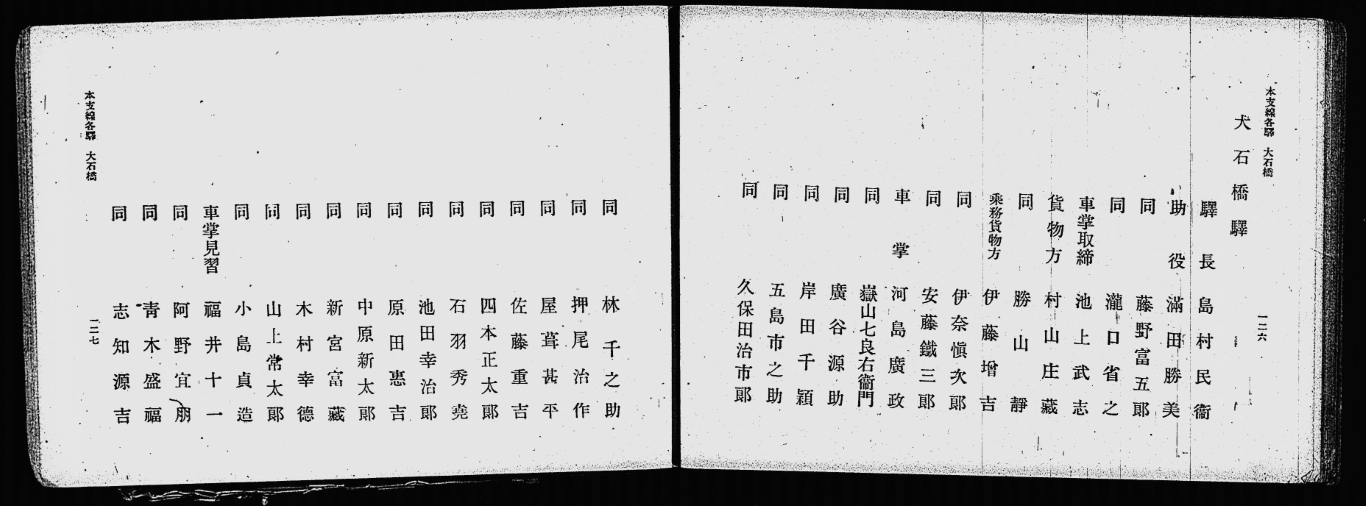 本支線各驛 大石橋
一二六
大石橋驛
驛長 島村民衞
助役 滿田勝美
同 藤野富五郞
同 瀧口省之
車掌取締 池上武志
貨物方 村山庄藏
同 勝山靜
乘務貨物方 伊藤增吉
同 伊奈愼次郞
同 安藤鐵三郞
車掌 河島廣政
同 嶽山七良右衞門
同 廣谷源助
同 岸田千穎
同 五島市之助
同 久保田治市郞
同 林千之助
同 押尾治作
同 屋葺甚平
同 佐藤重吉
同 四本正太郞
同 石羽秀堯
同 池田幸治郞
同 原田惠吉
同 中原新太郞
同 新宮富藏
同 木村幸德
同 山上常太郞
同 小島貞造
車掌見習 福井十一
同 阿野宜朋
同 靑木盛福
同 志知源吉
本支線各驛 大石橋
一二七